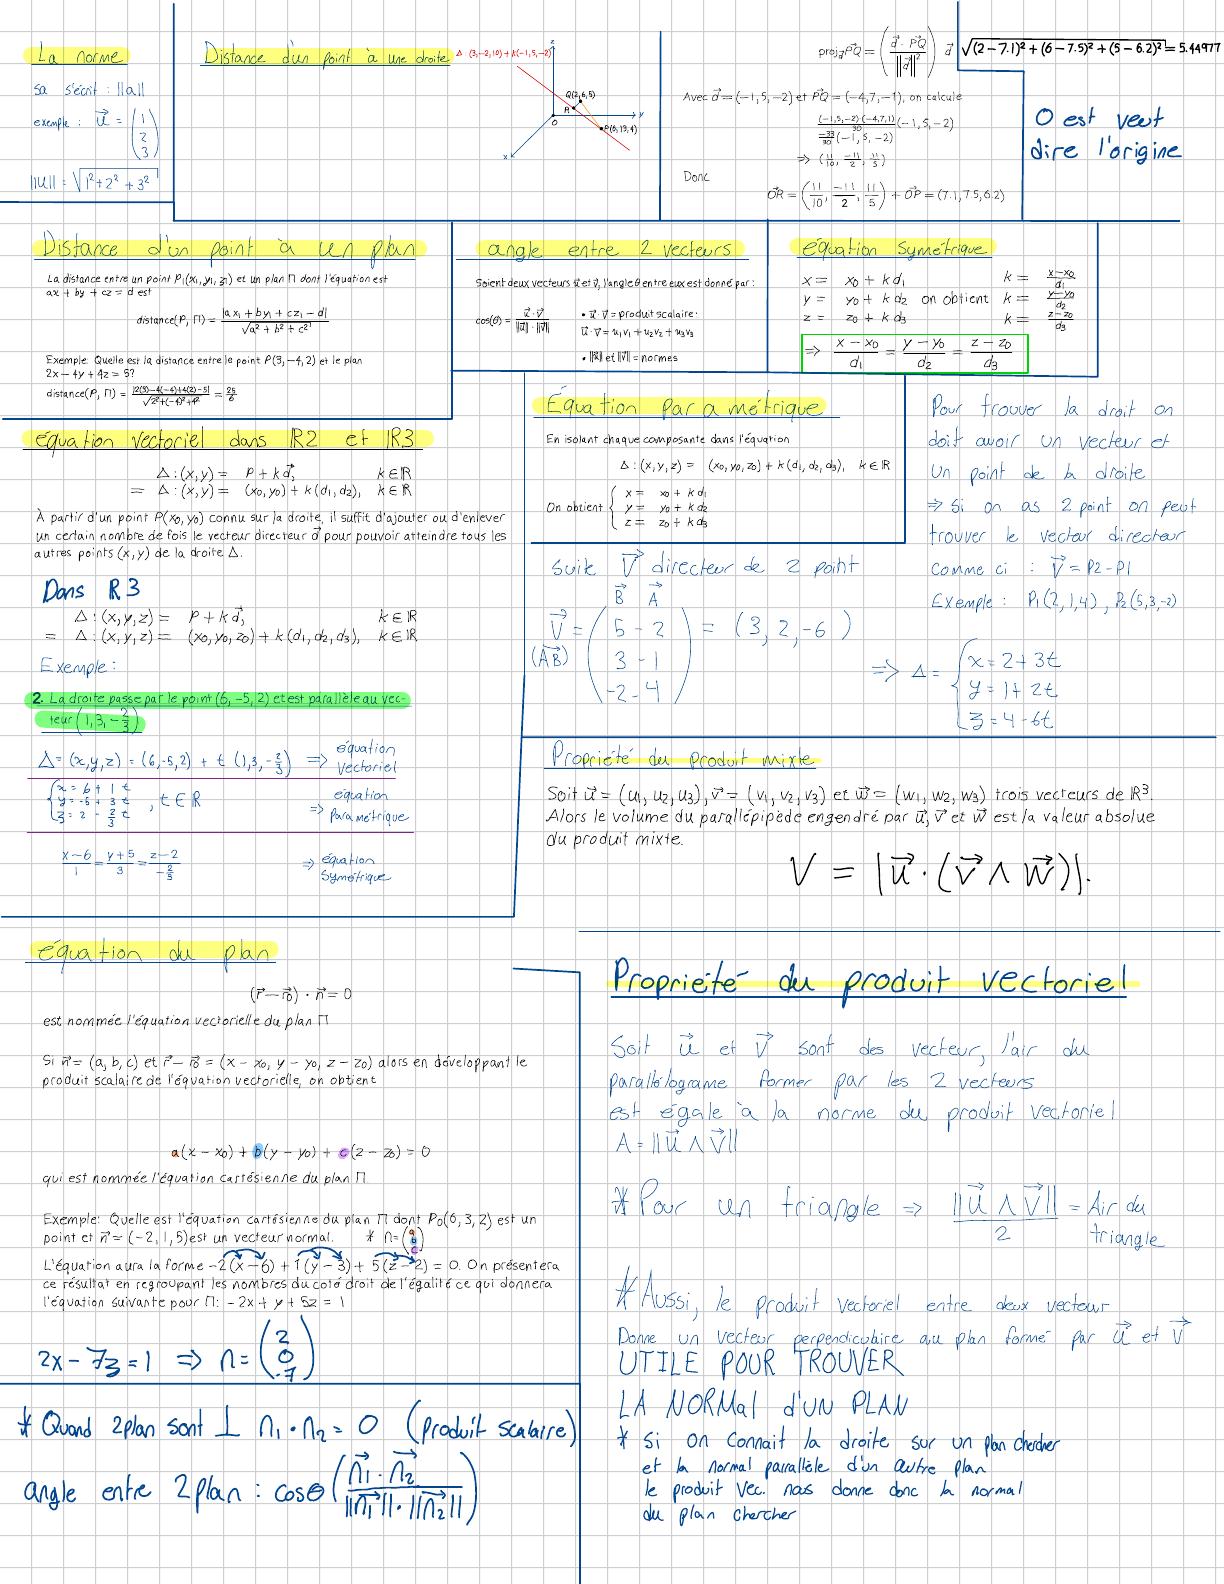 La norme
sa s'écrit : ||a||
exemple : u⃗ = (1 2 3)
||u|| = √(1² + 2² + 3²)
Distance d'un point à une droite
Δ (3,-2,10) + k(-1,5,-2)
z
Q(2,6,5)
R
O
y
P(6,13,4)
x
proj_d PQ⃗ = (d⃗ · PQ⃗ / ||d⃗||²) d⃗
Avec d⃗ = (−1, 5, −2) et PQ⃗ = (−4, 7, −1), on calcule
(−1,5,−2)·(−4,7,1)/30 (−1, 5, −2)
−33/30 (−1, 5, −2)
⇒ (11/10, −11/2, 11/5)
Donc
OR⃗ = (11/10, −11/2, 11/5) + OP⃗ = (7.1, 7.5, 6.2)
√((2 − 7.1)² + (6 − 7.5)² + (5 − 6.2)²) = 5.44977
O est veut
dire l'origine
Distance d'un point à un plan
La distance entre un point P₁(x₁, y₁, z₁) et un plan Π dont l'équation est
ax + by + cz = d est
distance(P, Π) = |ax₁ + by₁ + cz₁ − d| / √(a² + b² + c²)
Exemple: Quelle est la distance entre le point P(3, −4, 2) et le plan
2x − 4y + 4z = 5?
distance(P, Π) = |2(3)−4(−4)+4(2)−5| / √(2²+(−4)²+4²) = 25/6
angle entre 2 vecteurs
Soient deux vecteurs u⃗ et v⃗, l'angle θ entre eux est donné par :
cos(θ) = u⃗ · v⃗ / ||u⃗|| · ||v⃗||
• u⃗ · v⃗ = produit scalaire :
u⃗ · v⃗ = u₁v₁ + u₂v₂ + u₃v₃
• ||u⃗|| et ||v⃗|| = normes
équation symétrique
x = x₀ + k d₁ k = (x−x₀)/d₁
y = y₀ + k d₂ on obtient k = (y−y₀)/d₂
z = z₀ + k d₃ k = (z−z₀)/d₃
⇒ (x − x₀)/d₁ = (y − y₀)/d₂ = (z − z₀)/d₃
équation vectoriel dans IR2 et IR3
Δ : (x, y) = P + k d⃗, k ∈ ℝ
= Δ : (x, y) = (x₀, y₀) + k (d₁, d₂), k ∈ ℝ
À partir d'un point P(x₀, y₀) connu sur la droite, il suffit d'ajouter ou d'enlever
un certain nombre de fois le vecteur directeur d⃗ pour pouvoir atteindre tous les
autres points (x, y) de la droite Δ.
Dans R3
Δ : (x, y, z) = P + k d⃗, k ∈ ℝ
= Δ : (x, y, z) = (x₀, y₀, z₀) + k (d₁, d₂, d₃), k ∈ ℝ
Exemple :
2. La droite passe par le point (6, −5, 2) et est parallèle au vec-
teur (1, 3, −2/3)
Δ = (x,y,z) = (6,-5,2) + t (1,3,-2/3) ⇒ équation
vectoriel
{x = 6 + 1 t
y = -5 + 3 t , t ∈ R ⇒ équation
z = 2 - 2/3 t Paramétrique
(x−6)/1 = (y+5)/3 = (z−2)/(−2/3) ⇒ équation
Symétrique
Équation Paramétrique
En isolant chaque composante dans l'équation
Δ : (x, y, z) = (x₀, y₀, z₀) + k (d₁, d₂, d₃), k ∈ ℝ
On obtient { x = x₀ + k d₁
y = y₀ + k d₂
z = z₀ + k d₃
Pour trouver la droit on
doit avoir un vecteur et
un point de la droite
⇒ si on as 2 point on peut
trouver le vecteur directeur
comme ci : v⃗ = P2 - P1
Exemple : P₁(2,1,4) , P₂(5,3,-2)
⇒ Δ = { x = 2 + 3t
y = 1 + 2t
z = 4 - 6t
suite V⃗ directeur de 2 point
B⃗ A⃗
V⃗ = (5 - 2 = (3, 2, -6)
(AB⃗) 3 - 1
-2 - 4)
Propriété du produit mixte
Soit u⃗ = (u₁, u₂, u₃), v⃗ = (v₁, v₂, v₃) et w⃗ = (w₁, w₂, w₃) trois vecteurs de ℝ³.
Alors le volume du parallépipède engendré par u⃗, v⃗ et w⃗ est la valeur absolue
du produit mixte.
V = |u⃗ · (v⃗ ∧ w⃗)|.
équation du plan
(r⃗ − r₀⃗) · n⃗ = 0
est nommée l'équation vectorielle du plan Π
Si n⃗ = (a, b, c) et r⃗ − r₀⃗ = (x − x₀, y − y₀, z − z₀) alors en développant le
produit scalaire de l'équation vectorielle, on obtient
a(x − x₀) + b(y − y₀) + c(z − z₀) = 0
qui est nommée l'équation cartésienne du plan Π
Exemple: Quelle est l'équation cartésienne du plan Π dont P₀(6, 3, 2) est un
point et n⃗ = (−2, 1, 5) est un vecteur normal. * n = (a b c)
L'équation aura la forme −2(x − 6) + 1(y − 3) + 5(z − 2) = 0. On présentera
ce résultat en regroupant les nombres du coté droit de l'égalité ce qui donnera
l'équation suivante pour Π: −2x + y + 5z = 1
2x - 7z = 1 ⇒ n = (2 0 -7)
* Quand 2plan sont ⊥ n₁ · n₂ = 0 (produit scalaire)
angle entre 2plan : cosθ (n₁⃗ · n₂⃗ / ||n₁⃗|| · ||n₂⃗||)
Propriété du produit vectoriel
Soit u⃗ et v⃗ sont des vecteur, l'air du
parallélograme former par les 2 vecteurs
est égale à la norme du produit vectoriel
A = ||u⃗ ∧ v⃗||
* Pour un triangle ⇒ ||u⃗ ∧ v⃗|| / 2 = Air du
triangle
* Aussi, le produit vectoriel entre deux vecteur
Donne un vecteur perpendiculaire au plan formé par u⃗ et v⃗
UTILE POUR TROUVER
LA NORMal d'UN PLAN
* si on connait la droite sur un plan chercher
et la normal parrallèle d'un autre plan
le produit vec. nous donne donc la normal
du plan chercher